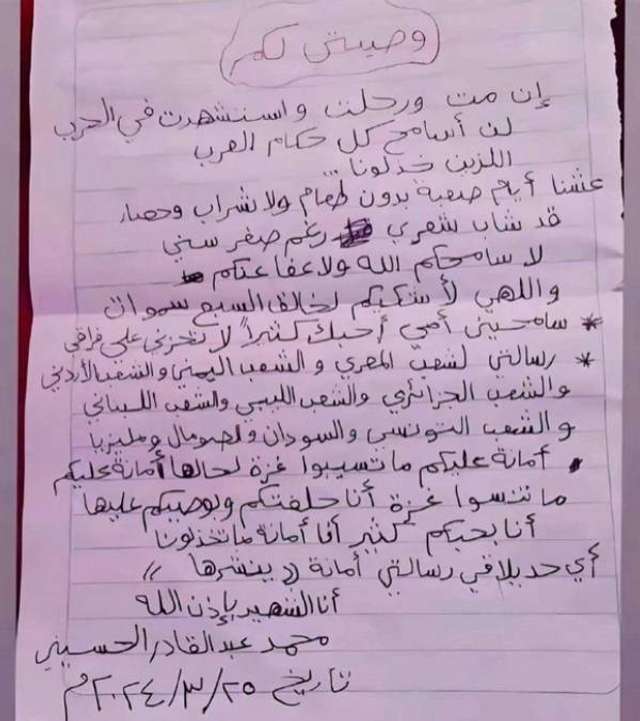 وصيتي لكم
إن مت ورحلت واستشهدت في الحرب
لن أسامح كل حكام العرب
اللزين خذلونا ...
عشنا أيام صعبة بدون طعام ولا شراب وحصار
قد شاب شعري رغم صغر سني
لا سامحكم الله ولا عفا عنكم
واللهي لأشكيكم لخالق السبع سموات
* سامحيني أمي أحبك كثيراً لا تحزني على فراقي
* رسالتي لشعب المصري والشعب اليمني والشعب الأردني
والشعب الجزائري والشعب الليبي والشعب اللبناني
والشعب التونسي والسودان ولصومال ومليزيا
أمانة عليكم ما تسيبوا غزة لحالها أمانة عليكم
ما تنسوا غزة أنا حلفتكم وبوصيكم عليها
أنا بحبكم كثير أمانة ما تخذلونا
أي حد يلاقي رسالتي أمانة (( ينشرها ))
أنا الشهيد بإذن الله
محمد عبدالقادر الحسيني
تاريخ ٢٠٢٤/٣/٢٥م